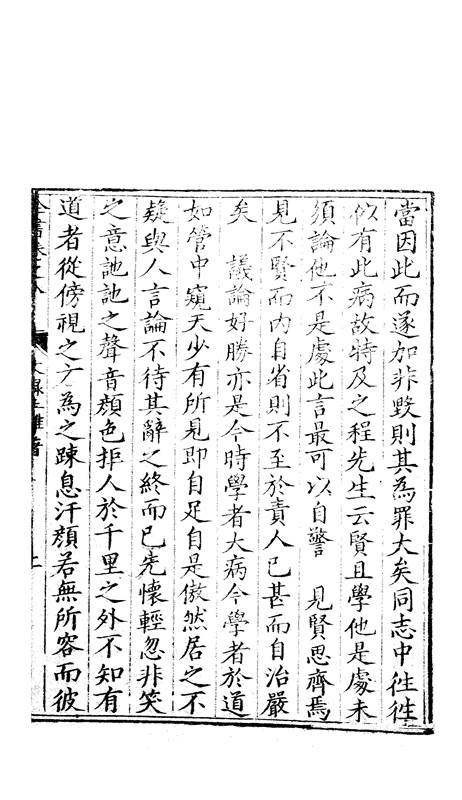 當因此而遂加非毀則其為罪大矣同志中往往
似有此病故特及之程先生云賢且學他是處未
須論他不是處此言最可以自警　見賢思齊焉
見不賢而內自省則不至於責人已甚而自治嚴
矣　議論好勝亦是今時學者大病今學者於道
如管中窺天少有所見即自足自是傲然居之不
疑與人言論不待其辭之終而已先懷輕忽非笑
之意訑訑之聲音顏色拒人於千里之外不知有
道者從傍視之方為之踈息汗顏若無所容而彼
全書卷之八
文錄五雜著